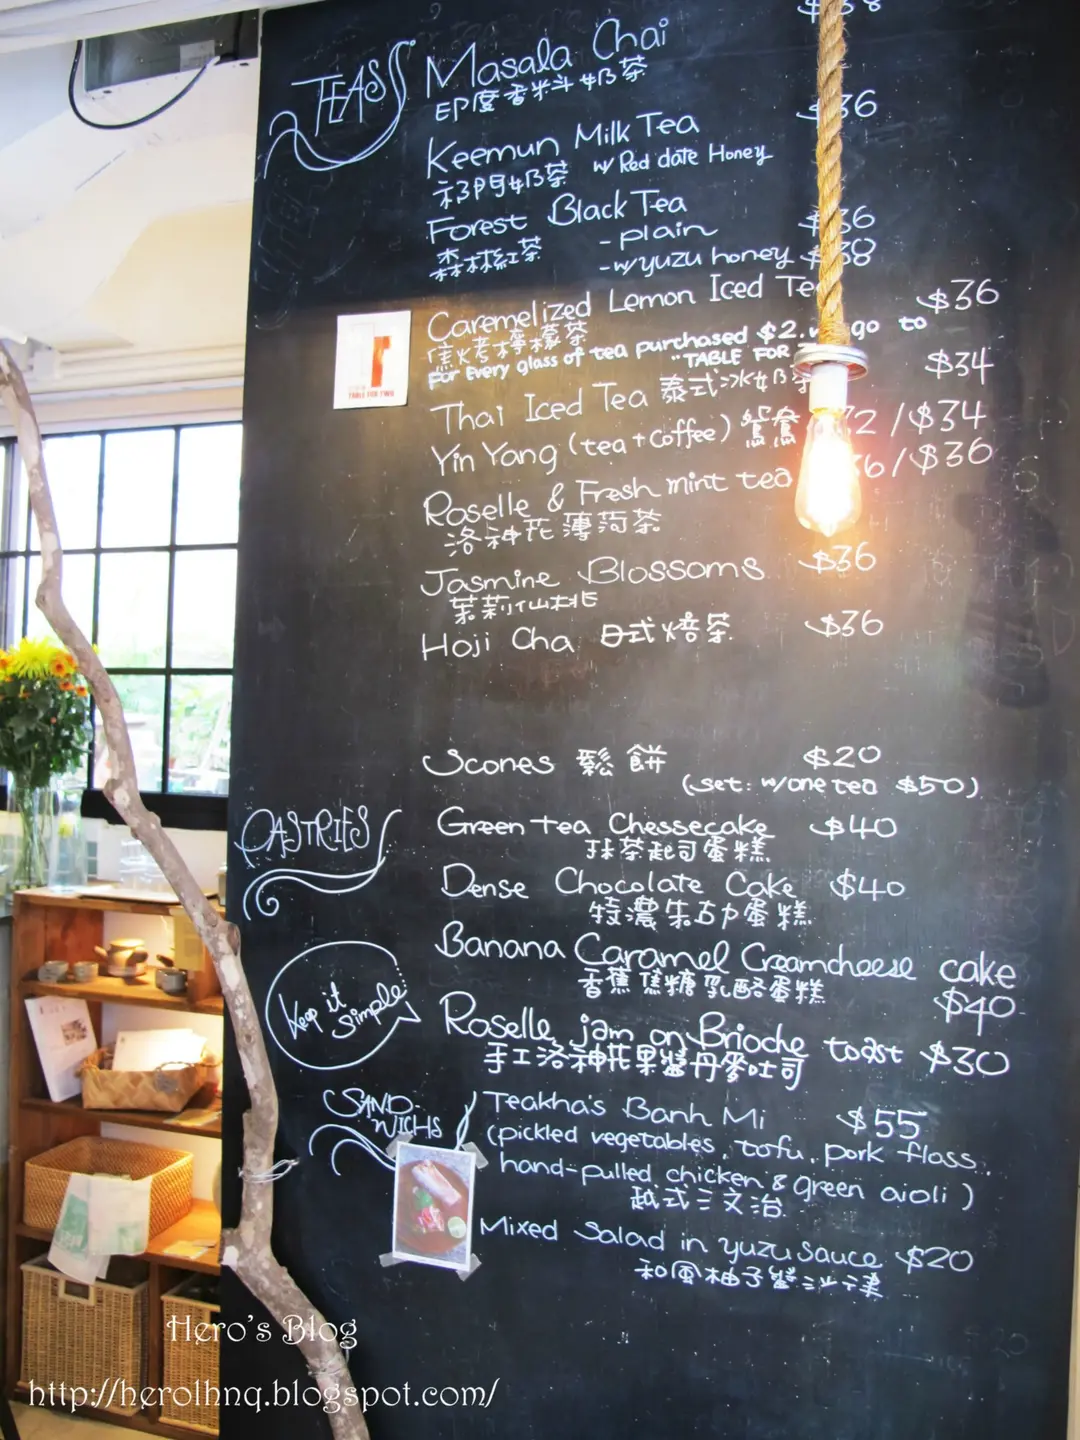 TEAS
Masala Chai $38
印度香料奶茶
Keemun Milk Tea $36
祁門奶茶 w/ Red date Honey
Forest Black Tea
森林紅茶 - plain $36
- w/ yuzu honey $38
Caremelized Lemon Iced Tea $36
焦烤檸檬茶
For Every glass of tea purchased $2. go to
"TABLE FOR
TABLE FOR TWO
Thai Iced Tea 泰式冰奶茶 $34
Yin Yang (tea + coffee) 鴛鴦 / $34
Roselle & Fresh mint tea / $36
洛神花薄荷茶
Jasmine Blossoms $36
茉莉仙桃
Hoji Cha 日式焙茶 $36
Scones 鬆餅 $20
(set: w/ one tea $50)
PASTRIES
Green tea Chessecake $40
抹茶起司蛋糕
Dense Chocolate Cake $40
特濃朱古力蛋糕
Banana Caramel Creamcheese cake
香蕉焦糖乳酪蛋糕 $40
Keep it simple
Roselle jam on Brioche toast $30
手工洛神花果醬丹麥吐司
SANDWICHS
Teakha's Banh Mi $55
(pickled vegetables, tofu, pork floss,
hand-pulled chicken & green aioli)
越式三文治
Mixed Salad in yuzu sauce $20
和風柚子醬沙律
Hero's Blog
http://herolhnq.blogspot.com/